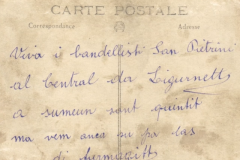 CARTE POSTALE
Correspondance Adresse
Viva i bandellist San Pietrini
al Central da Ligurnett
a sumeun sont quintit
ma vem anes su pa las
di furmigitt